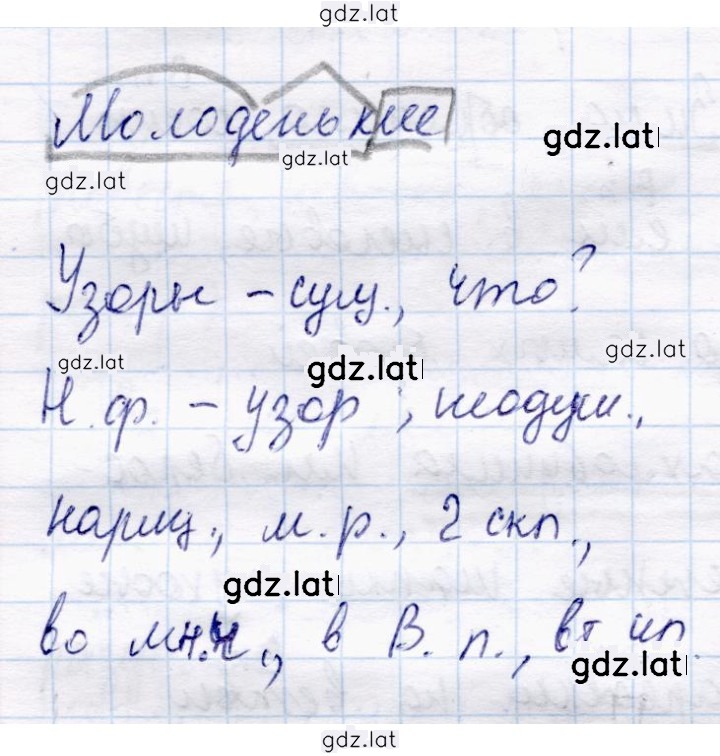 gdz.lat
Молоденькие
gdz.lat
gdz.lat
gdz.lat
Узоры – сущ., что?
gdz.lat
gdz.lat
gdz.lat
Н.ф. – узор, неодуш.,
нариц., м.р., 2 скл.,
gdz.lat
во мн.ч., в В.п., вт чл
gdz.lat
gdz.lat